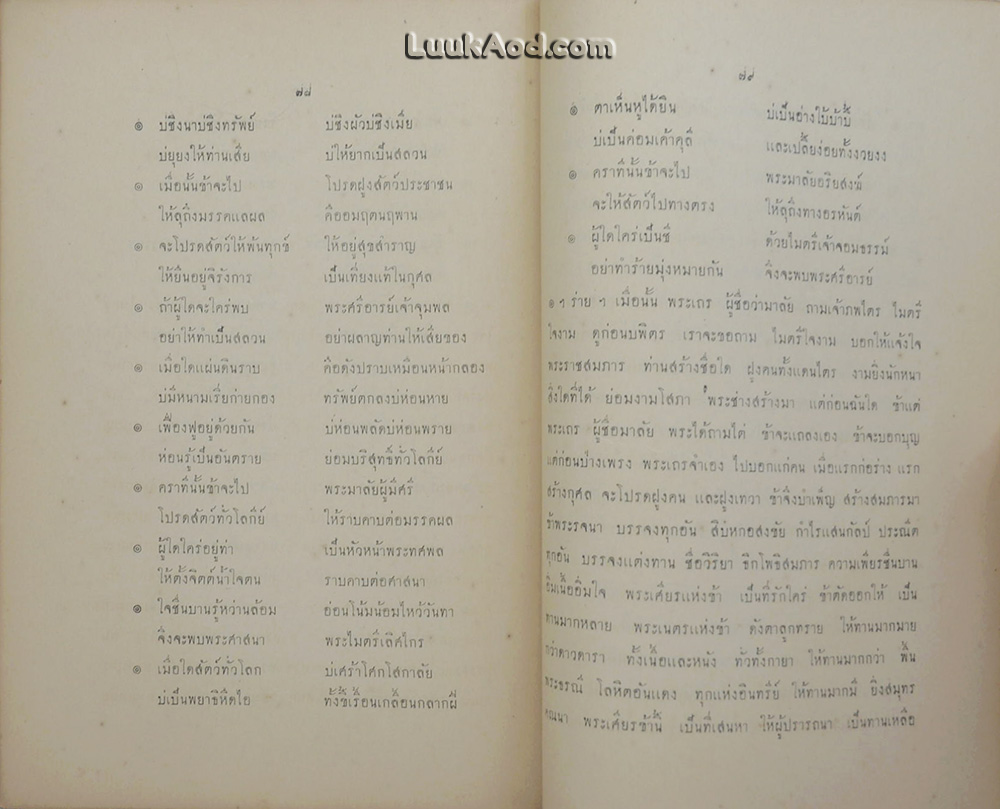 LuukAod.com
๗๘
๏ บ่ชิงนาบ่ชิงทรัพย์ บ่ชิงผัวบ่ชิงเมีย
บ่ยุยงให้ท่านเสีย บ่ให้ยากเป็นสลวน
๏ เมื่อนั้นข้าจะไป โปรดฝูงสัตว์ประชาชน
ให้ลุถึงมรรคแลผล คืออมฤตนฤพาน
๏ จะโปรดสัตว์ให้พ้นทุกข์ ให้อยู่สุขสำราญ
ให้ยืนอยู่จิรังการ เป็นเที่ยงแท้ในกุศล
๏ ถ้าผู้ใดจะใคร่พบ พระศรีอารย์เจ้าจุมพล
อย่าให้ทำเป็นสลวน อย่าผลาญท่านให้เสียของ
๏ เมื่อใดแผ่นดินราบ คือดังปราบเหมือนหน้ากลอง
บ่มีหนามเรี่ยก่ายกอง ทรัพย์ตกลงบ่ห่อนหาย
๏ เฟื่องฟูอยู่ด้วยกัน บ่ห่อนพลัดบ่ห่อนพราย
ห่อนรู้เป็นอันตราย ย่อมบริสุทธิ์ทั่วโลกีย์
๏ คราทีนั้นข้าจะไป พระมาลัยผู้มีศรี
โปรดสัตว์ทั่วโลกีย์ ให้ราบคาบต่อมรรคผล
๏ ผู้ใดใคร่อยู่ท่า เป็นหัวหน้าพระทศพล
ให้ตั้งจิตต์น้ำใจตน ราบคาบต่อศาสนา
๏ ใจชื่นบานรู้หว่านล้อม อ่อนโน้มน้อมไหว้วันทา
จึงจะพบพระศาสนา พระไมตรีเลิศไกร
๏ เมื่อใดสัตว์ทั่วโลก บ่เศร้าโศกโสกาลัย
บ่เป็นพยาธิหิดไฝ ทั้งขี้เรื้อนเกลื้อนกลากฝี
๗๙
๏ ตาเห็นหูได้ยิน บ่เป็นอ่างใบ้บ้าบี้
บ่เป็นค่อมเค้าคุลี และเปลี้ยง่อยทั้งงวยงง
๏ คราทีนั้นข้าจะไป พระมาลัยอริยสงฆ์
จะให้สัตว์ไปทางตรง ให้ลุถึงทางอรหันต์
๏ ผู้ใดใคร่เป็นชี ด้วยไมตรีเจ้าจอมธรรม์
อย่าทำร้ายมุ่งหมายกัน จึงจะพบพระศรีอารย์
๏ ฯ ร่าย ฯ เมื่อนั้น พระเถร ผู้ชื่อว่ามาลัย ถามเจ้าภพไตร ไมตรี
ใจงาม ดูก่อนบพิตร เราจะขอถาม ไมตรีใจงาม บอกให้แจ้งใจ
พระราชสมภาร ท่านสร้างชื่อใด ฝูงคนทั้งแดนไตร งามยิ่งนักหนา
สิ่งใดที่ได้ ย่อมงามโสภา พระช่างสร้างมา แต่ก่อนฉันใด ข้าแต่
พระเถร ผู้ชื่อมาลัย พระได้ถามไต่ ข้าจะแถลงเอง ข้าจะบอกบุญ
แต่ก่อนป่างเพรง พระเถรจำเอง ไปบอกแก่คน เมื่อแรกก่อร่าง แรก
สร้างกุศล จะโปรดฝูงคน และฝูงเทวา ข้าจึงบำเพ็ญ สร้างสมภารมา
ข้าพระรจนา บรรจงทุกอัน สิบหกอสงขัย กำไรแสนกัลป์ ประณีต
ทุกอัน บรรจงแต่งทาน ชื่อวิริยา ธิกโพธิสมภาร ความเพียรชื่นบาน
อิ่มเนื้ออิ่มใจ พระเศียรแห่งข้า เป็นที่รักใคร่ ข้าตัดออกให้ เป็น
ทานมากหลาย พระเนตรแห่งข้า ดังตาลูกทราย ให้ทานมากมาย
กว่าดาวดารา ทั้งเนื้อและหนัง ทั่วทั้งกายา ให้ทานมากกว่า พื้น
พระธรณี โลหิตอันแดง ทุกแห่งอินทรีย์ ให้ทานมากมี ยิ่งสมุทร
คณนา พระเศียรข้านี้ เป็นที่เสนหา ให้ผู้ปรารถนา เป็นทานเหลือ